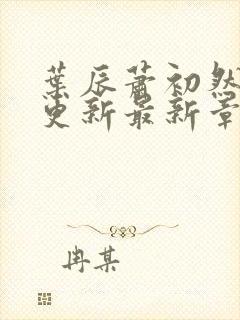 葉辰蕭初然
更新最新章
冉某